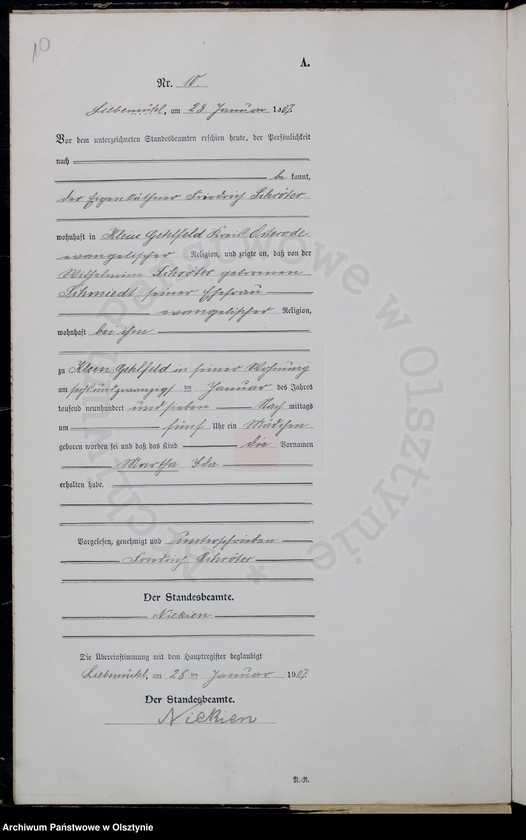 10
A.
Nr. 10.
Liebemühl, am 28 Januar 1907.
Vor dem unterzeichneten Standesbeamten erschien heute, der Persönlichkeit
nach
be kannt,
der Eigenkäthner Friedrich Schröter
wohnhaft in Klein Gehlfeld Kreis Osterode
evangelischer Religion, und zeigte an, daß von der
Wilhelmine Schröter geborenen
Schmiedt, seiner Ehefrau
evangelischer Religion,
wohnhaft bei ihm
zu Klein Gehlfeld in seiner Wohnung
am sechsundzwanzigsten Januar des Jahres
tausend neunhundert und sieben Nach mittags
um fünf Uhr ein Mädchen
geboren worden sei und daß das Kind die Vornamen
Martha Ida
erhalten habe.
Vorgelesen, genehmigt und unterschrieben
Friedrich Schröter
Der Standesbeamte.
Niekien
Die Übereinstimmung mit dem Hauptregister beglaubigt
Liebemühl, am 28 ten Januar 1907.
Der Standesbeamte.
Niekien
N.-R.
Archiwum Państwowe w Olsztynie
Archiwum Państwowe w Olsztynie